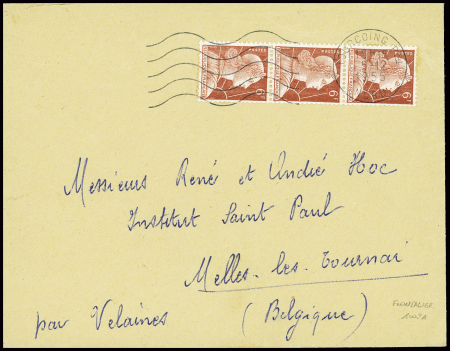 RCOING
POSTES POSTES POSTES
6 6 6
Messieurs René et André Hoc
Institut Saint Paul
Melles-les-Tournai
par Velaines (Belgique)